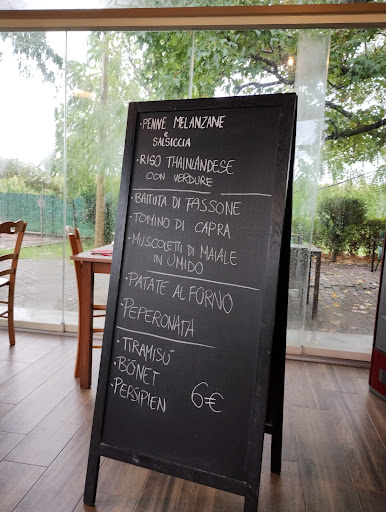 • PENNE MELANZANE
E
SALSICCIA
• RISO THAINLANDESE
CON VERDURE
• BATTUTA DI FASSONE
• TOMINO DI CAPRA
• MUSCOLETTI DI MAIALE
IN UMIDO
• PATATE AL FORNO
• PEPERONATA
• TIRAMISÚ
• BÖNET
• PERSIPIEN 6€